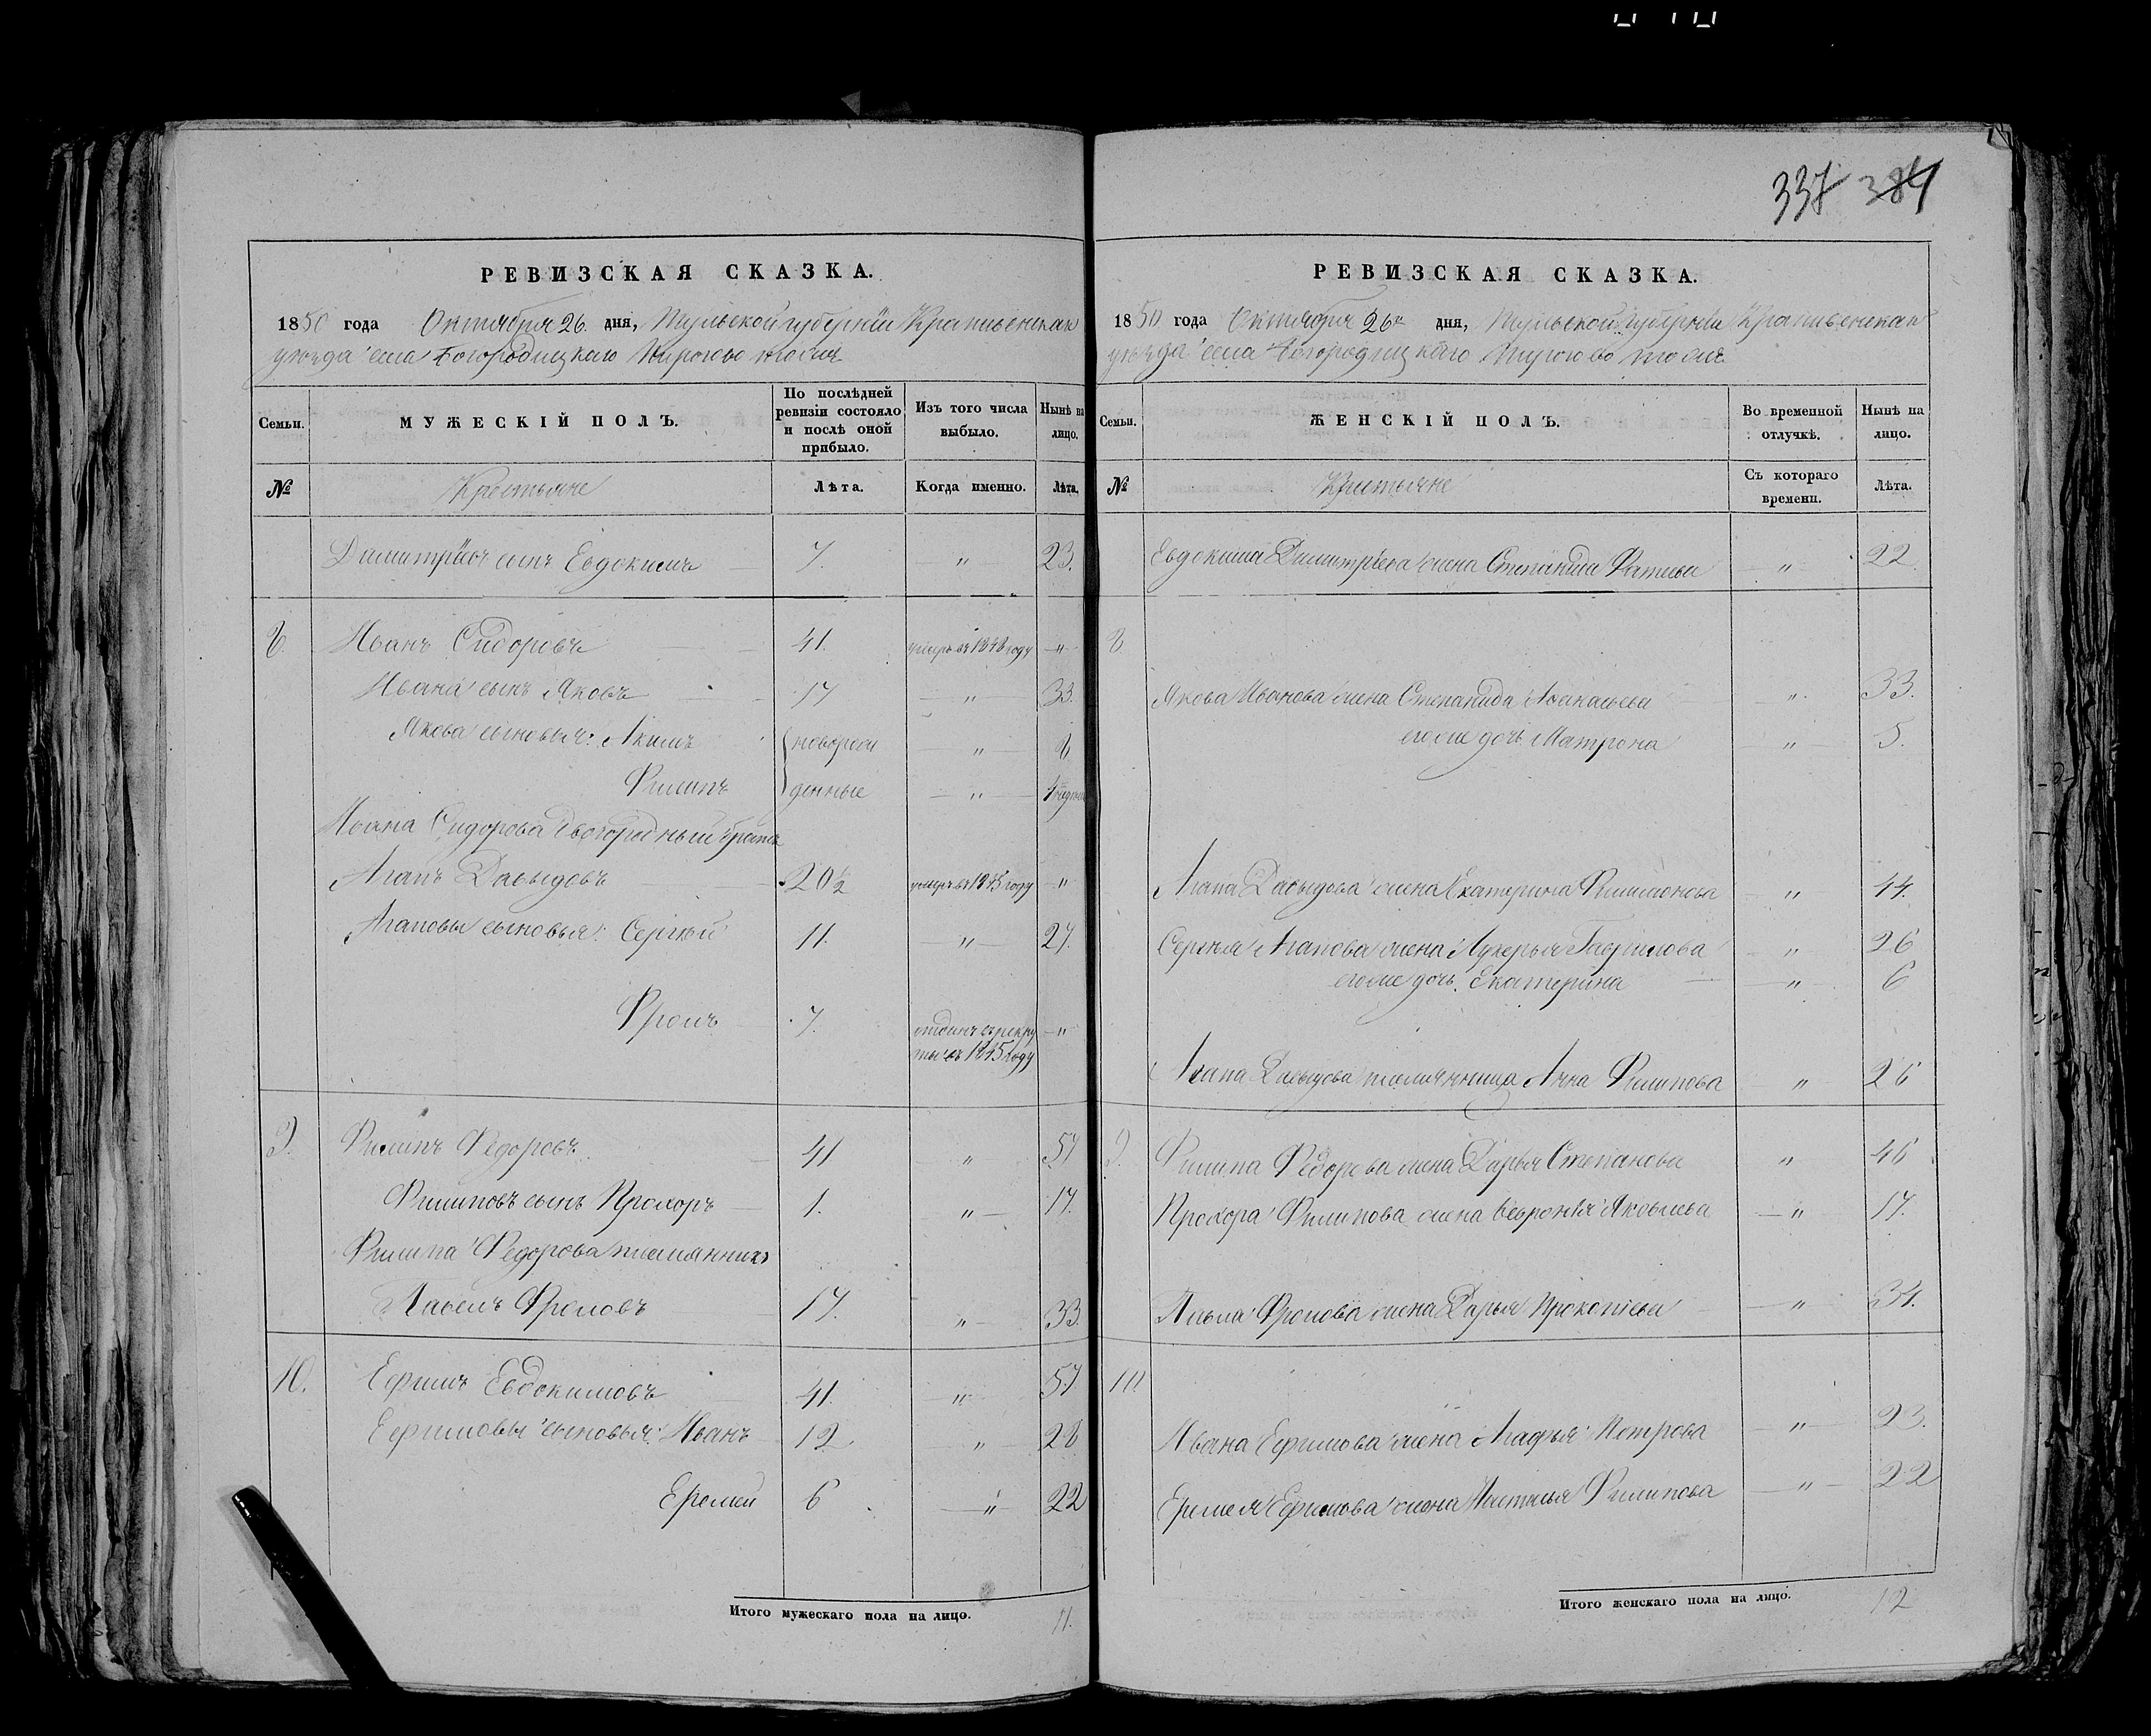 337 384
РЕВИЗСКАЯ СКАЗКА.
1850 года Октября 26. дня, Тульской губерніи Крапивенскаго
уѣзда села Богородицкаго
Семьи.
МУЖЕСКІЙ ПОЛЪ.
По послѣдней ревизіи состояло и послѣ оной прибыло.
Изъ того числа выбыло.
Нынѣ на лицо.
№
Крестьяне
Лѣта.
Когда именно.
Лѣта.
Димитріевъ сынъ Евдокимъ 7. " 23.
8. Иванъ Сидоровъ 41. умеръ въ 1848 году "
Ивана сынъ Яковъ 17 " 33.
Якова сыновья: Акимъ новорож " 8
Филипъ денные "
Ивана Сидорова двоюродный братъ
Агапъ Давыдовъ 20½ умеръ въ 1845 году "
Агаповы сыновья: Сергѣй 11. " 27.
Фролъ 7. отданъ въ рекру "
ты въ 1845 году
9. Филипъ Федоровъ 41 " 57
Филиповъ сынъ Прохоръ 1. " 17.
Филипа Федорова племянникъ
Павелъ Фроловъ 17. " 33.
10. Ефимъ Евдокимовъ 41. " 57
Ефимовы сыновья: Иванъ 12 " 28
Еремей 6 " 22
Итого мужескаго пола на лицо. 11.
РЕВИЗСКАЯ СКАЗКА.
1850 года Октября 26 дня, Тульской губерніи Крапивенскаго
уѣзда села Богородицкаго
Семьи.
ЖЕНСКІЙ ПОЛЪ.
Во временной отлучкѣ.
Нынѣ на лицо.
№
Крестьяне
Съ котораго времени.
Лѣта.
Евдокима Димитріева жена Степанида " 22
8
Якова Иванова жена Степанида Афанасьева " 33.
его же дочь Матрона " 5.
Агапа Давыдова жена Екатерина " 44.
Сергѣя Агапова жена Лукерья Гаврилова " 26
его же дочь Екатерина " 6
Агапа Давыдова племянница Анна Филипова " 26
9. Филипа Федорова жена Дарья Степанова " 46
Прохора Филипова жена Февронія Яковлева " 17.
Павла Фролова жена Дарья Прокопіева " 34.
10
Ивана Ефимова жена Агафья Петрова " 23.
Еремея Ефимова жена Настасья Филипова " 22
Итого женскаго пола на лицо. 12